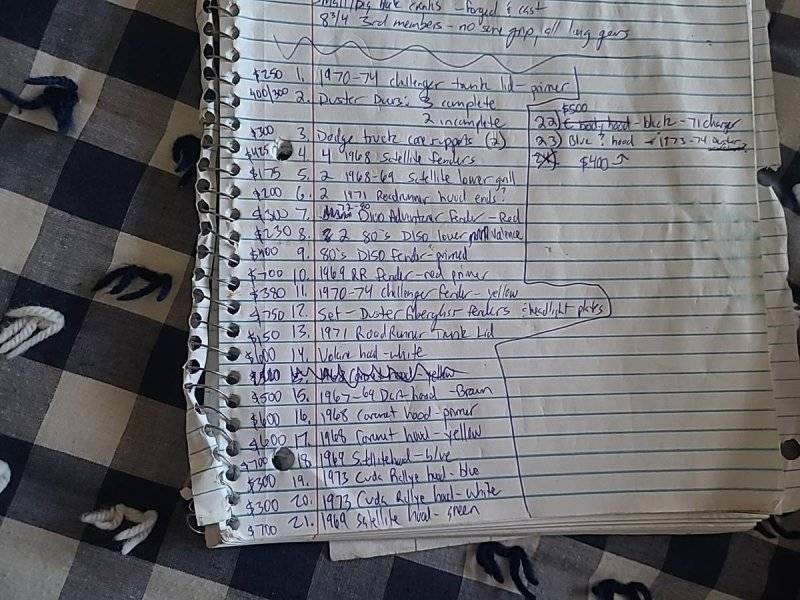 Small/Big cranks - forged & cast
8 3/4 3rd members - no sure grip, all long gears
$250 1. 1970-74 Challenger tank lid - primer
400/300 2. Duster Doors: 3 complete
2 incomplete
$300 3. Dodge truck core supports (2)
$425 4. 4 1968 Satellite fenders
$175 5. 2 1968-69 Satellite lower grill
$200 6. 2 1971 Roadrunner hood ends?
$300 7. 72-80 D100 Adventurer fender - Red
$230 8. 2 80's D150 lower valence
$400 9. 80's D150 fender - primed
$700 10. 1969 RR fender - red primer
$380 11. 1970-74 Challenger fender - yellow
$750 12. Set - Duster fiberglass fenders & headlight plates
$150 13. 1971 RoadRunner Tank Lid
$600 14. Volare hood - white
$500 15. 1967-69 Dart hood - Brown
$600 16. 1968 Coronet hood - primer
$600 17. 1968 Coronet hood - yellow
$700 18. 1969 Satellite hood - blue
$300 19. 1973 Cuda Rallye hood - blue
$300 20. 1973 Cuda Rallye hood - white
$700 21. 1969 Satellite hood - green
$500
22) hood - black - 71 charger
23) Blue ? hood - 1973-74
$400